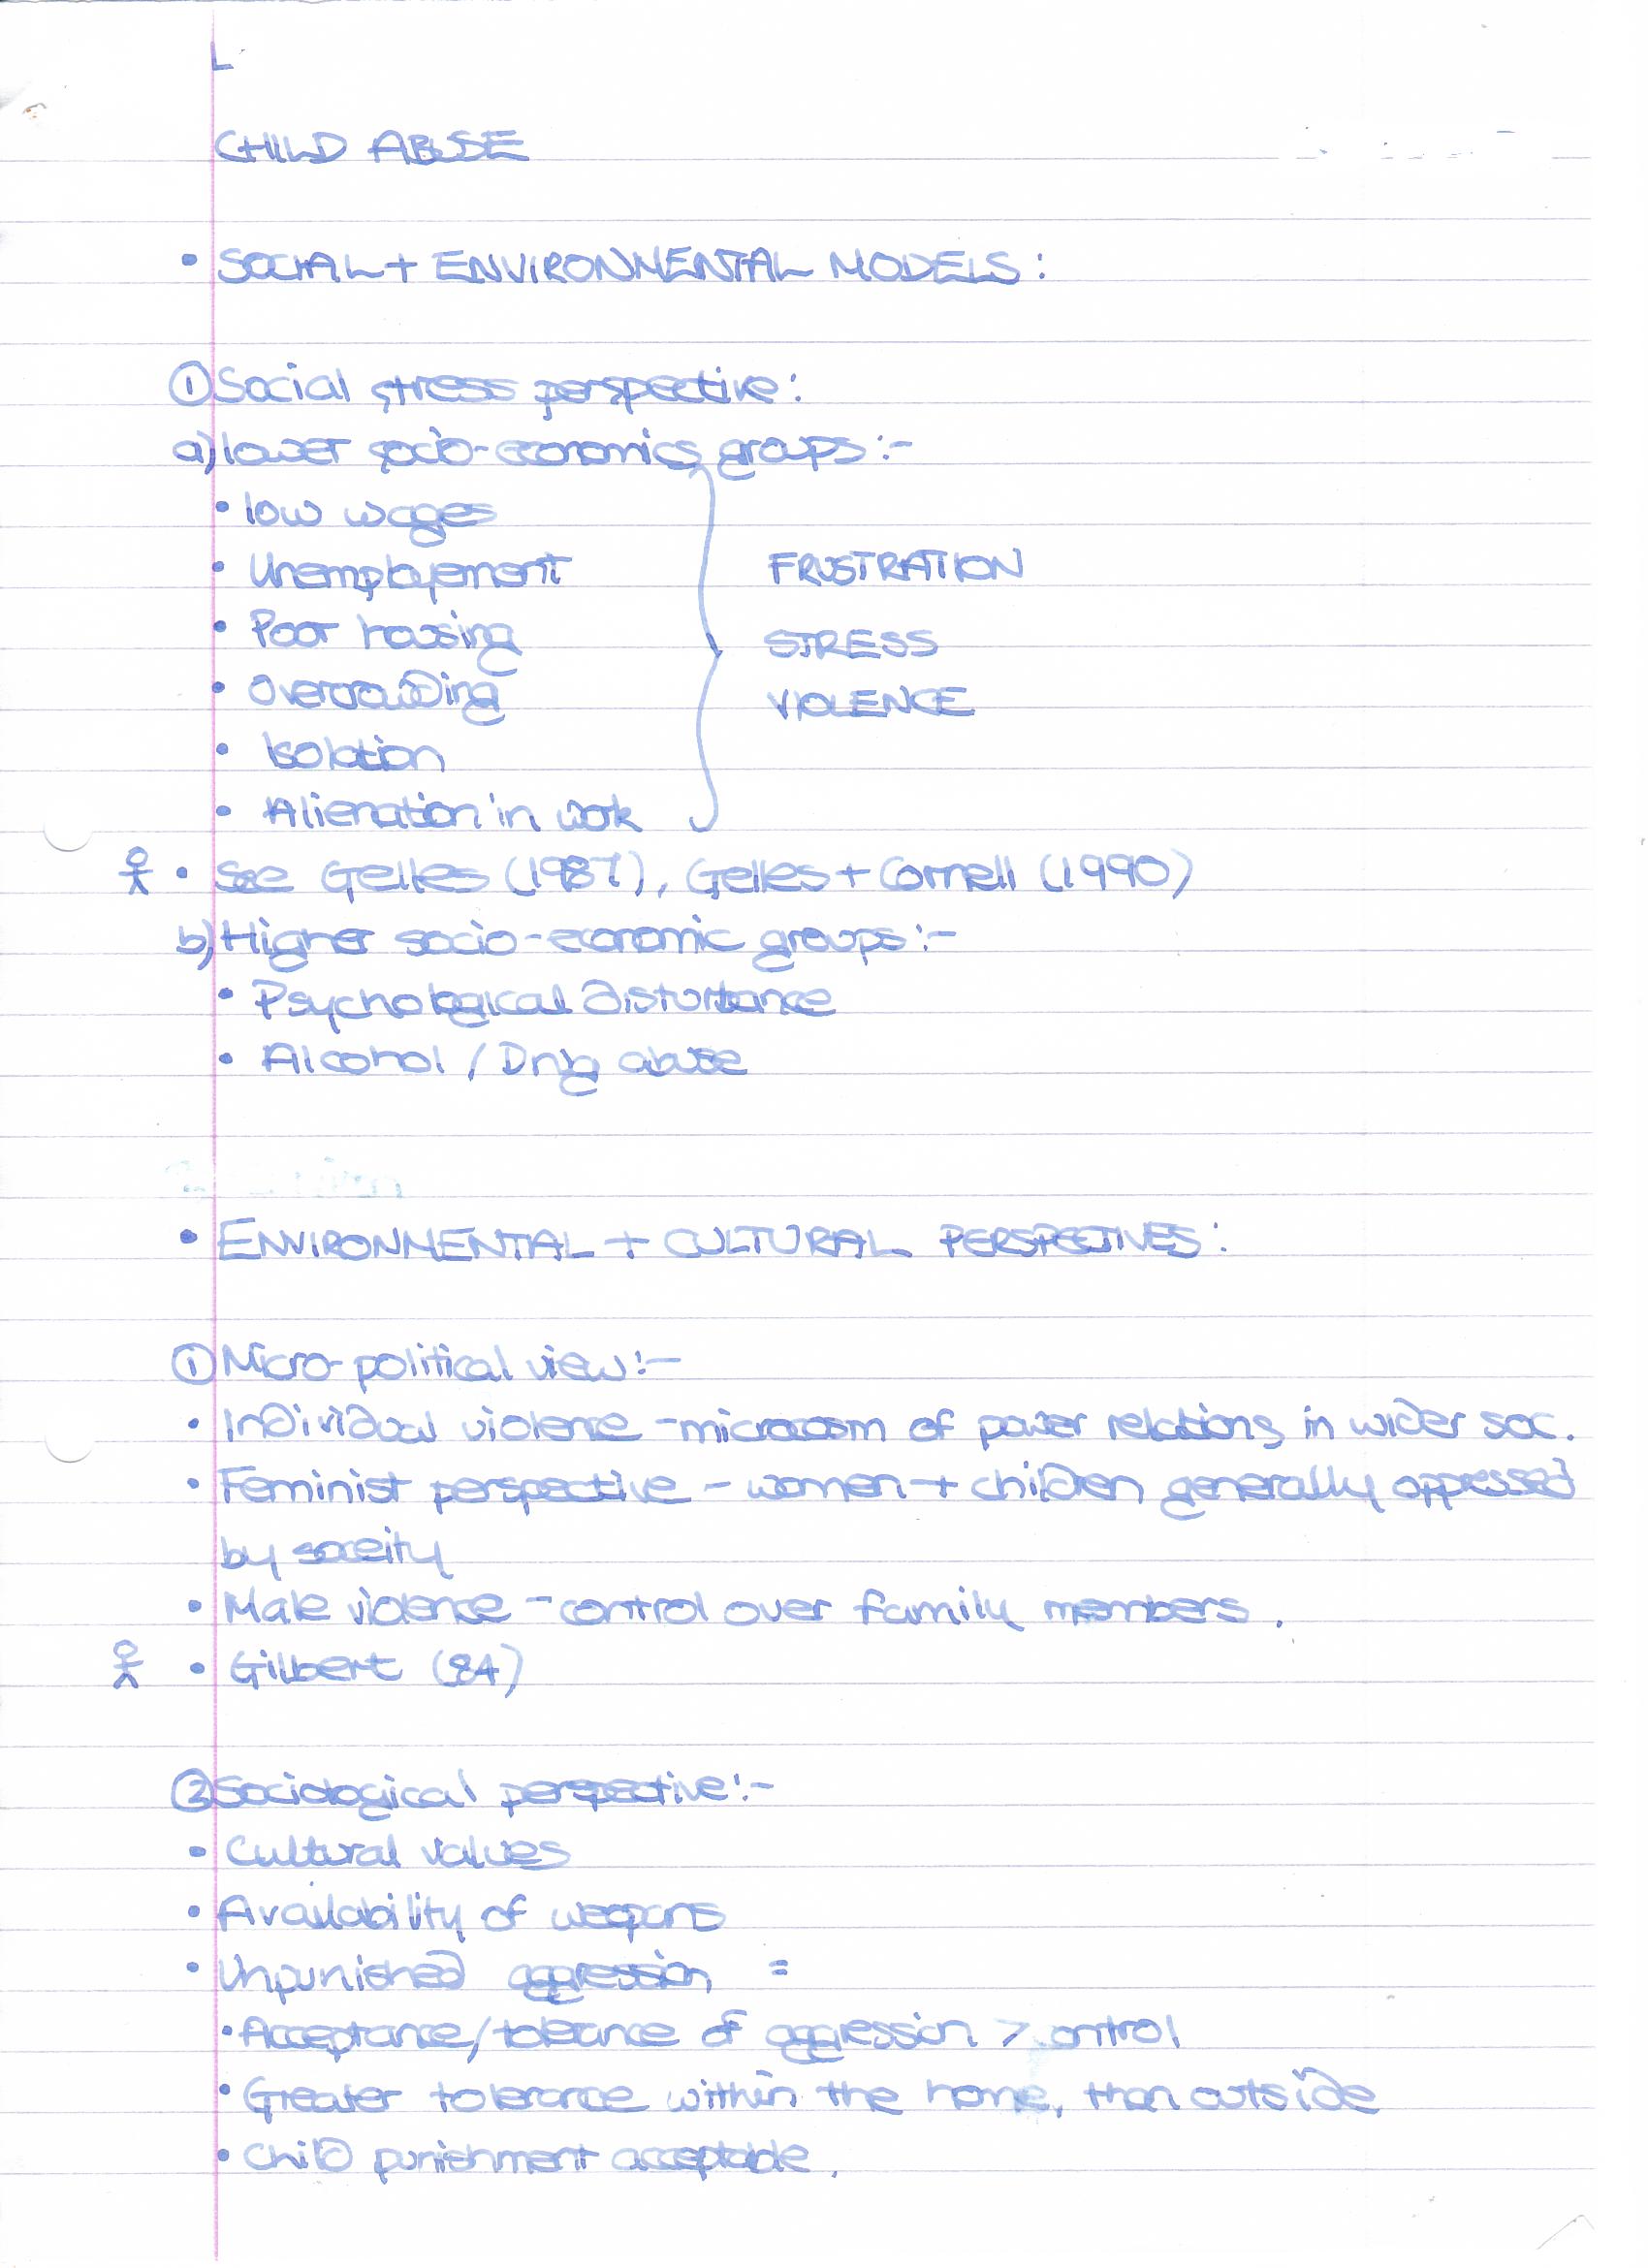 L
CHILD ABUSE
• SOCIAL + ENVIRONMENTAL MODELS:
① Social stress perspective:
a) lower socio-economics groups:-
• low wages
• Unemployement
FRUSTRATION
• Poor housing
STRESS
• Overcrowding
VIOLENCE
• Isolation
• Alienation in work
• See Gelles (1987), Gelles + Cornell (1990)
b) Higher socio-economic groups:-
• Psychological disturbance
• Alcohol / Drug abuse
• ENVIRONMENTAL + CULTURAL PERSPECTIVES:
① Micro-political view:-
• Individual violence - microcosm of power relations in wider soc.
• Feminist perspective - women + children generally oppressed
by soceity
• Male violence - control over family members.
• Gilbert (84)
② Sociological perspective:-
• Cultural values
• Availability of weapons
• Unpunished aggression =
• Acceptance/tolerance of aggression > control
• Greater tolerance within the home, than outside
• Child punishment acceptable.